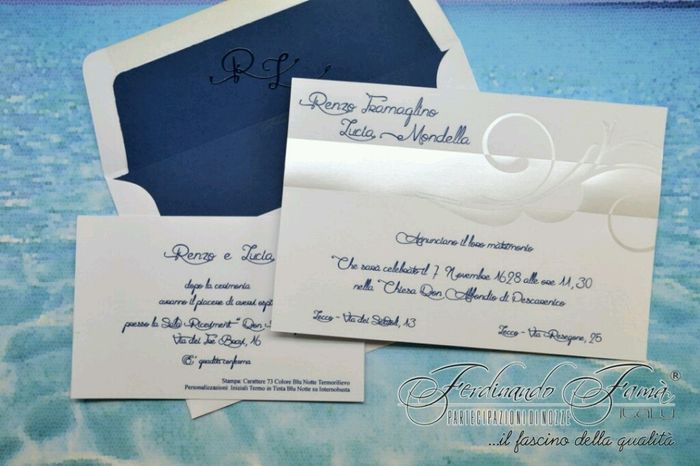 R L
Renzo Tramaglino
Lucia Mondella
Annunciano il loro matrimonio
Che sarà celebrato il 7 Novembre 1628 alle ore 11,30
nella Chiesa Don Abbondio di Pescarenico
Lecco - Via dei 13
Lecco - Via Resegone, 25
Renzo e Lucia,
dopo la cerimonia
avranno il piacere di avervi
presso la Sala Ricevimenti "Don
Via dei Tre 16
E' gradita conferma
Stampa: Carattere 73 Colore Blu Notte Termorilievo
Personalizzazioni: Iniziali Termo in Tinta Blu Notte su Internobusta
Ferdinando Famà®
PARTECIPAZIONIDINOZZE italy
...il fascino della qualità